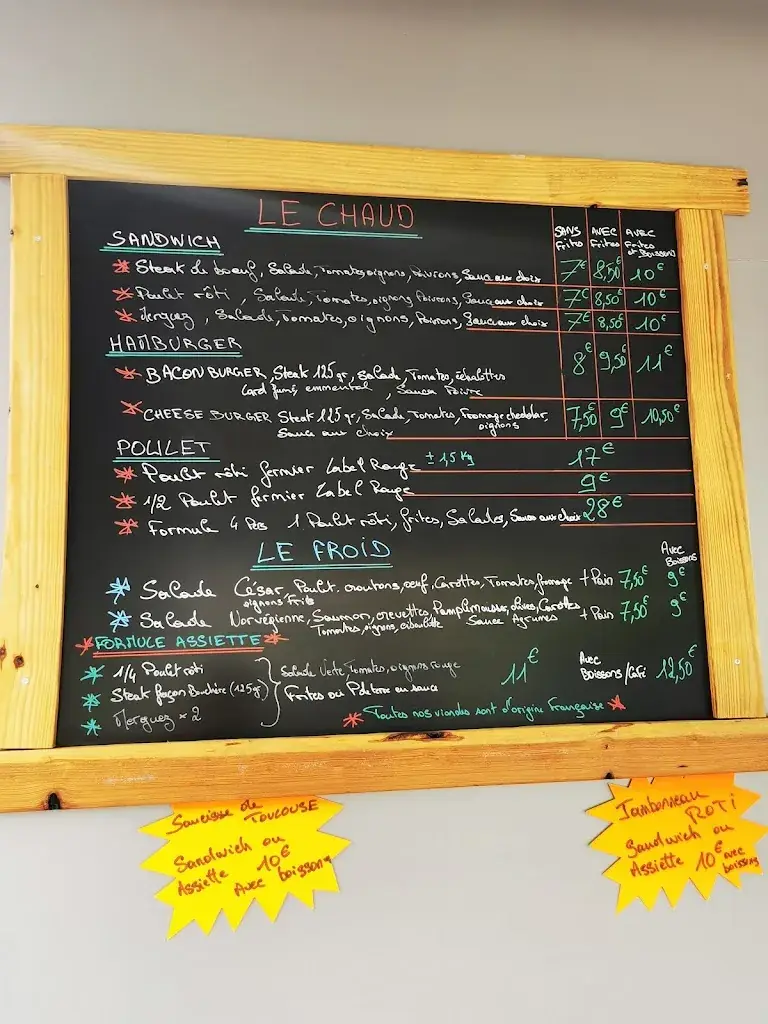 LE CHAUD
SANS Frites AVEC Frites AVEC Frites et Boisson
SANDWICH
Steak de boeuf, Salade, Tomates, oignons, Poivrons, Sauce aux choix 7€ 8,50€ 10€
Poulet rôti, Salade, Tomates, oignons, Poivrons, Sauce aux choix 7€ 8,50€ 10€
Merguez, Salade, Tomates, oignons, Poivrons, Sauce aux choix 7€ 8,50€ 10€
HAMBURGER
BACON BURGER, Steak 125 gr, Salade, Tomates, échalottes 8€ 9,50€ 11€
Lard fumé, emmental, Sauce Poivre
CHEESE BURGER Steak 125 gr, Salade, Tomates, Fromage cheddar, 7,50€ 9€ 10,50€
oignons
Sauce aux choix
POULET
Poulet rôti fermier Label Rouge ± 1,5 Kg 17€
1/2 Poulet fermier Label Rouge 9€
Formule 4 Pers 1 Poulet rôti, frites, Salades, Sauce aux choix 28€
LE FROID
Avec Boissons
Salade César Poulet, croutons, oeuf, Carottes, Tomates, fromage + Pain 7,50€ 9€
oignons Frits
Salade Norvégienne, Saumon, crevettes, Pamplemousse, olives, Carottes + Pain 7,50€ 9€
Tomates, oignons, ciboulette Sauce Agrumes
FORMULE ASSIETTE
1/4 Poulet rôti Salade Verte, Tomates, oignons rouge 11€ Avec Boissons/Café 12,50€
Steak façon Bouchère (125 gr) Frites ou P. de terre en sauce
Merguez x 2
Toutes nos viandes sont d'origine Française
Saucisse de
TOULOUSE
Sandwich ou
Assiette 10€
Avec boissons
Jambonneau
ROTI
Sandwich ou
Assiette 10€ avec
boissons